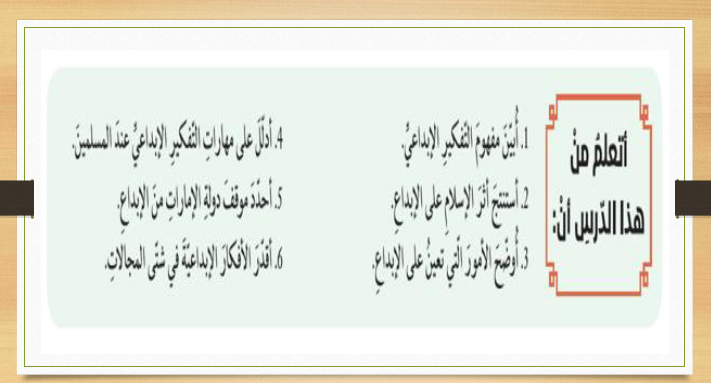 أتعلمُ منْ
هذا الدّرسِ أنْ:
1. أُبيّنَ مفهومَ التّفكيرِ الإبداعيِّ.
2. أستنتجَ أثرَ الإسلامِ على الإبداعِ.
3. أُوضّحَ الأمورَ الّتي تعينُ على الإبداعِ.
4. أدلّلَ على مهاراتِ التّفكيرِ الإبداعيِّ عندَ المسلمينَ.
5. أحدّدَ موقفَ دولةِ الإماراتِ منَ الإبداعِ.
6. أقدّرَ الأفكارَ الإبداعيّةَ في شتّى المجالاتِ.